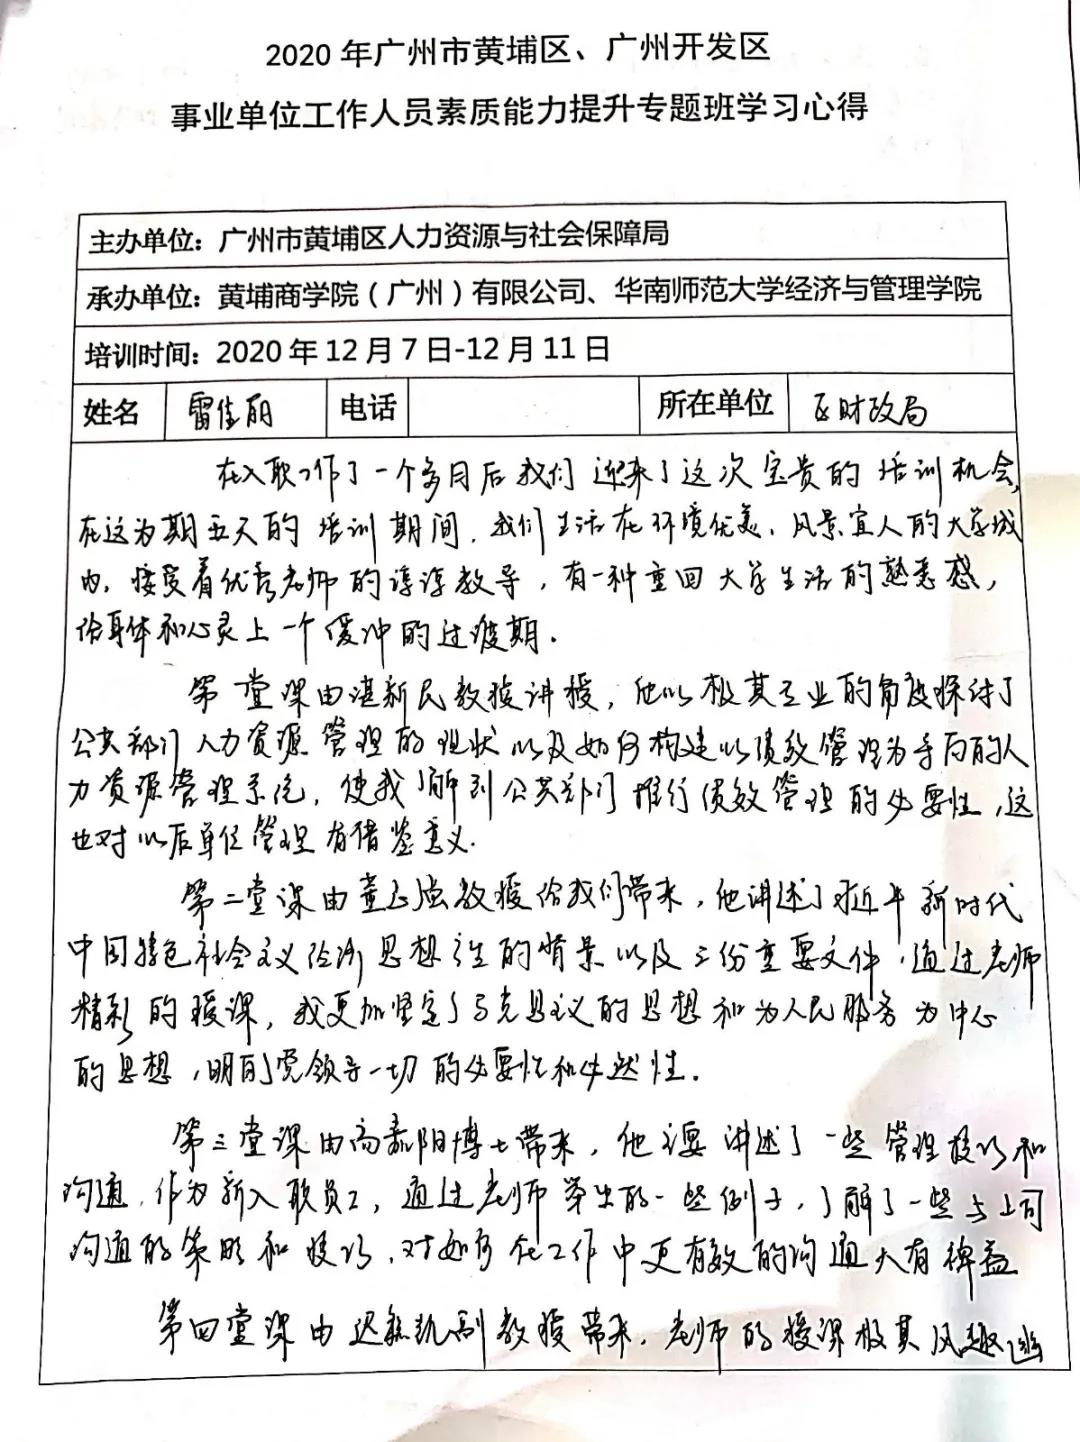 2020 年广州市黄埔区、广州开发区
事业单位工作人员素质能力提升专题班学习心得
主办单位：广州市黄埔区人力资源与社会保障局
承办单位：黄埔商学院（广州）有限公司、华南师范大学经济与管理学院
培训时间：2020 年 12 月 7 日-12 月 11 日
姓名 雷佳丽 电话 所在单位 区财政局
在入职工作了一个多月后我们迎来了这次宝贵的培训机会,
在这为期五天的培训期间，我们生活在环境优美、风景宜人的大学城
内，接受着优秀老师的谆谆教导，有一种重回大学生活的熟悉感，
给身体和心灵上一个缓冲的过渡期．
第一堂课由谌新民教授讲授，他以极其专业的角度探讨了
公共部门人力资源管理的现状以及如何构建以绩效管理为手段的人
力资源管理系统，使我了解到公共部门推行绩效管理的必要性，这
也对以后单位管理有借鉴意义．
第二堂课由董玉强教授给我们带来，他讲述了近年新时代
中国特色社会主义经济思想产生的背景以及三份重要文件，通过老师
精彩的授课，我更加坚定了马克思主义的思想和为人民服务为中心
的思想，明白党领导一切的必要性和必然性．
第三堂课由高嘉阳博士带来，他主要讲述了一些管理技巧和
沟通，作为新入职员工，通过老师举出的一些例子，了解了一些与上司
沟通的策略和技巧，对如何在工作中更有效的沟通大有裨益
第四堂课由迟 副教授带来，老师的授课极其风趣幽